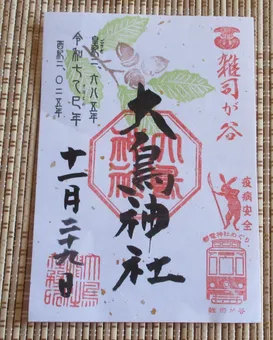 雑司が谷
皇紀二六八五年
令和七乙巳年
西紀二〇二五年
大鳥神社
十一月二十九日
疫病安全
御朱印めぐり
雑司ヶ谷